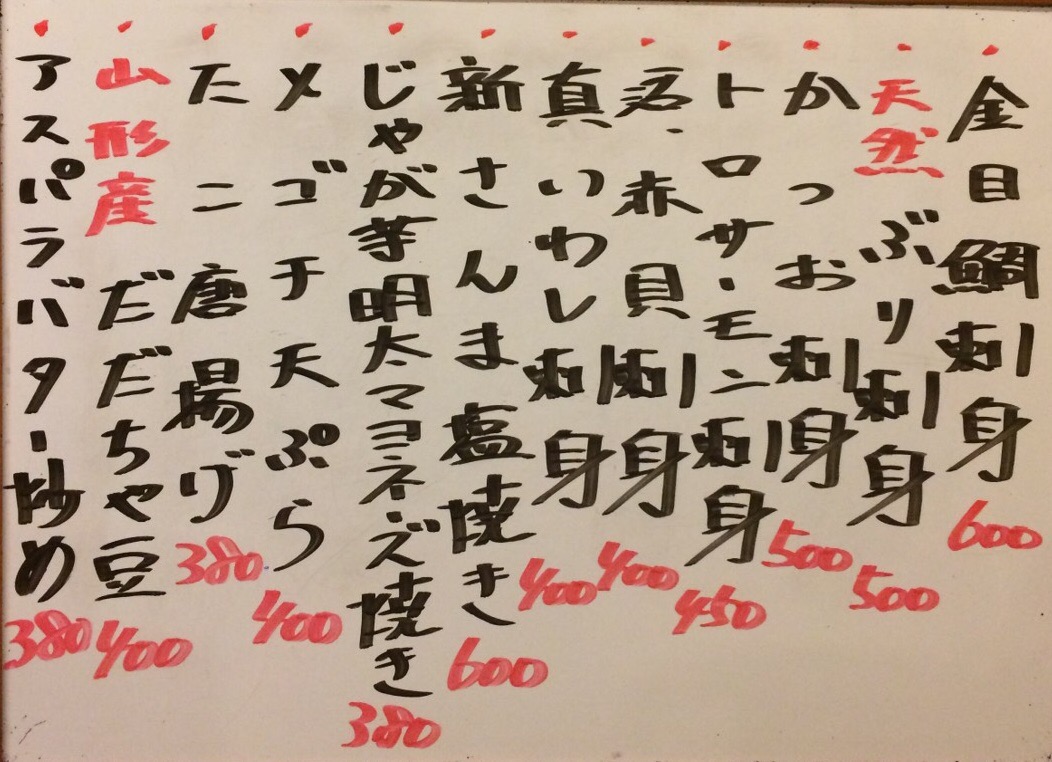 金目鯛刺身 600
天然ぶり刺身 500
かつお刺身 500
トロサーモン刺身 450
活、赤貝刺身 400
真いわし刺身 400
新さんま塩焼き 600
じゃが芋明太マヨネーズ焼き 380
メゴチ天ぷら 400
たこ唐揚げ 380
山形産だだちゃ豆 400
アスパラバター炒め 380